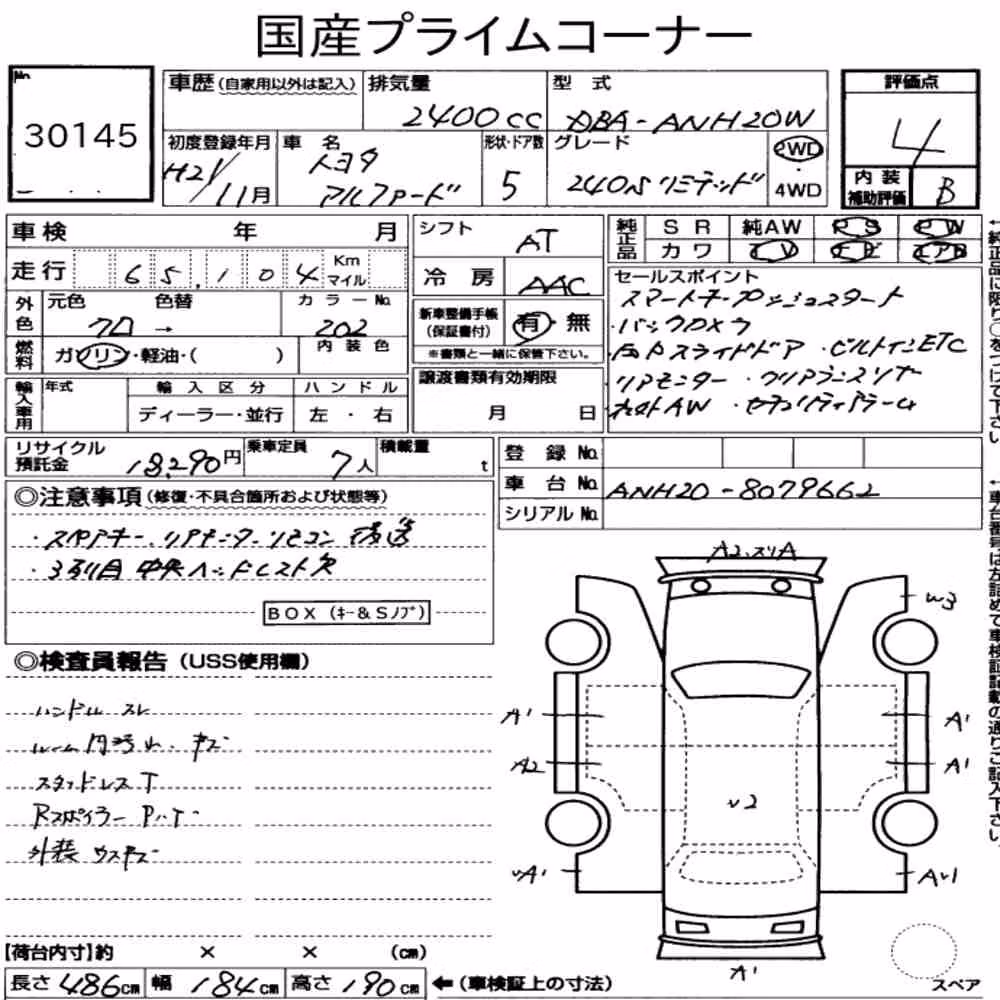 国産プライムコーナー
No.
30145
車歴(自家用以外は記入)
排気量
2400cc
型式
DBA-ANH20W
評価点
4
初度登録年月
H21/11月
車名
トヨタ
アルファード
形状・ドア数
5
グレード
240S リミテッド
2WD
4WD
内装
補助評価
B
車検 年 月
走行 65,104 Km マイル
シフト
AT
冷房 AAC
純正品
SR 純AW PS PW
カワ TV ナビ エアB
外色
元色 色替 カラーNo.
クロ → 202
内装色
燃料
ガソリン・軽油・( )
新車整備手帳
(保証書付)
有・無
※書類と一緒に保管下さい。
セールスポイント
スマートキー プッシュスタート
・バックカメラ
・両Pスライドドア ・ビルトインETC
・リアモニター ・クリアランスソナー
・セキュリティアラーム
輸入車用
年式
輸入区分
ハンドル
ディーラー・並行
左・右
譲渡書類有効期限
月 日
リサイクル
預託金
18,290円
乗車定員
7人
積載量
t
登録No.
車台No. ANH20-8079662
シリアルNo.
◎注意事項(修復・不具合箇所および状態等)
・スペアキー、リアモニターリモコン 後送
・3列目 中央ヘッドレスト欠
BOX (キー&Sノブ)
◎検査員報告(USS使用欄)
ハンドル スレ
ルーム内汚れ・キズ
スタッドレスT
Rスポイラー
外装 ウスキズ
A2.スリA
W3
A1
A1
A2
A1
U2
UA1
AU1
A1
【荷台内寸】約 × × (cm)
長さ486cm 幅184cm 高さ190cm
←(車検証上の寸法)
スペア
←純正品に限り○をつけて下さい。
←車台番号は左詰めで車検証記載の通りご記入下さい。